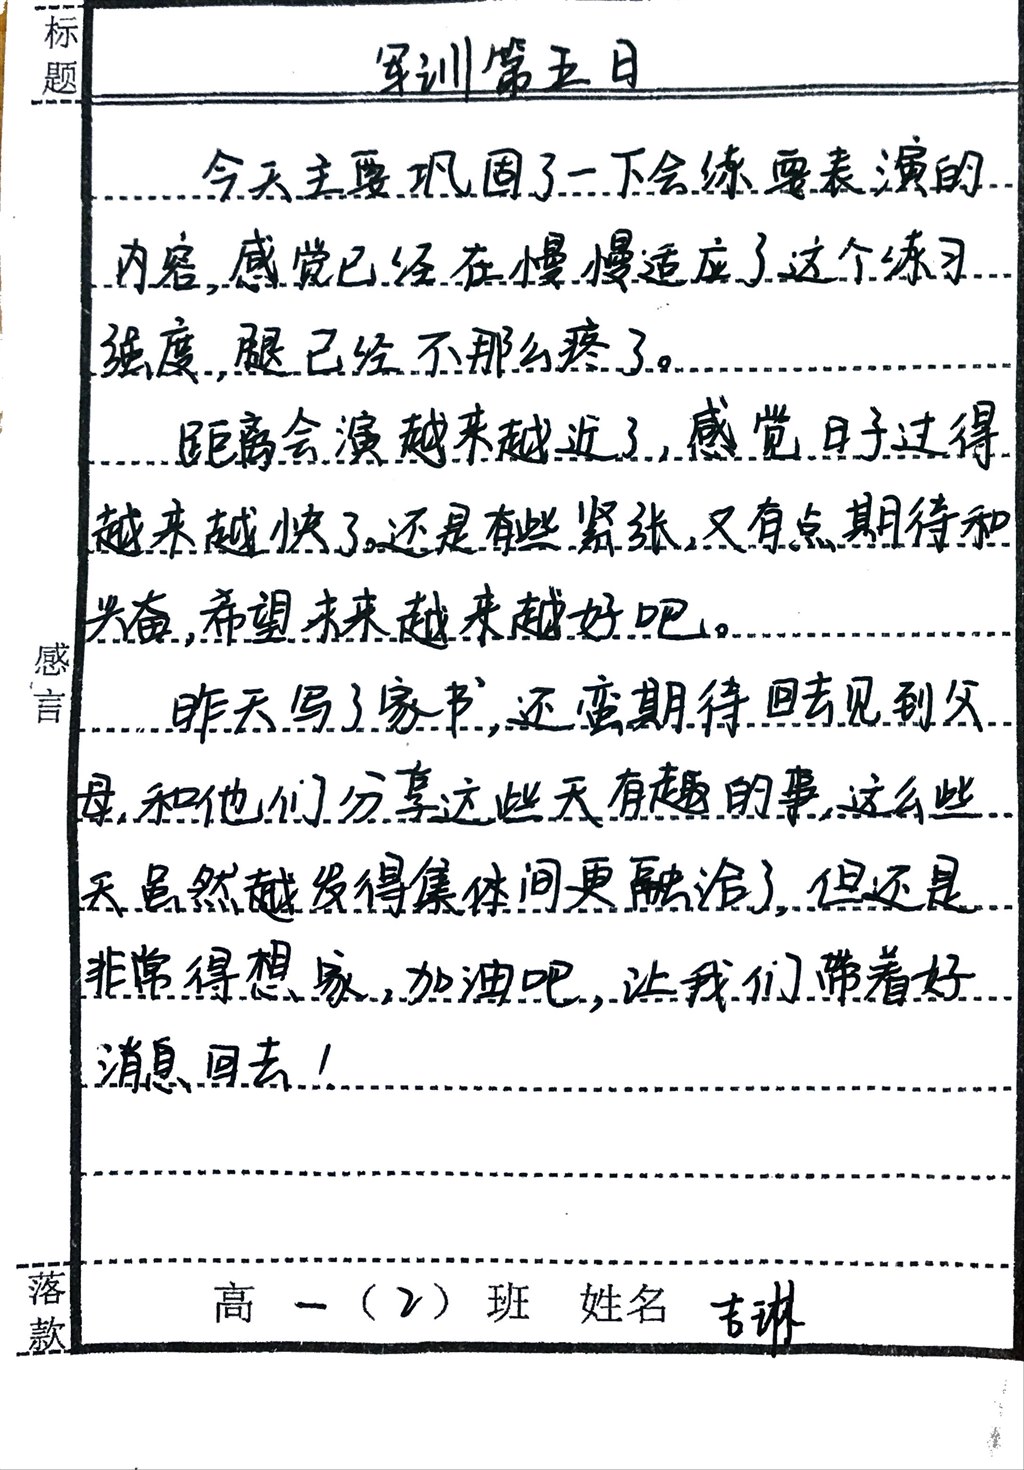 标题
军训第五日
今天主要巩固了一下会练要表演的
内容,感觉已经在慢慢适应了这个练习
强度,腿已经不那么疼了。
距离会演越来越近了,感觉日子过得
越来越快了。还是有些紧张,又有点期待和
兴奋,希望未来越来越好吧。
感言
昨天写了家书,还蛮期待回去见到父
母,和他们分享这些天有趣的事,这么些
天虽然越发得集体间更融洽了,但还是
非常得想家,加油吧,让我们带着好
消息回去!
落款
高一(2)班 姓名 吉琳